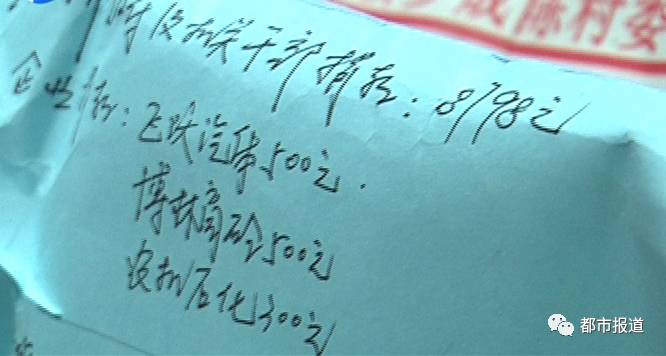 陈村委
机关干部捐款：8798元
企业捐：飞跃汽车500元.
博林商砼500元
农机石化300元
都市报道